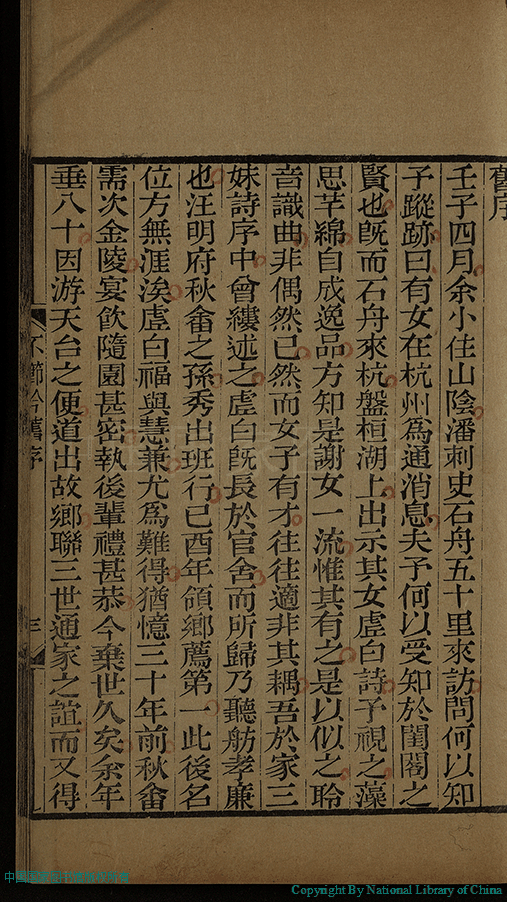 舊序
壬子四月余小住山陰潘刺史石舟五十里來訪問何以知
予蹤跡曰有女在杭州爲通消息夫予何以受知於閨閣之
賢也旣而石舟來杭盤桓湖上出示其女虛白詩予視之藻
思芊綿自成逸品方知是謝女一流惟其有之是以似之聆
音識曲非偶然已然而女子有才往往適非其耦吾於家三
妹詩序中曾縷述之虛白旣長於官舍而所歸乃聽舫孝廉
也汪明府秋畬之孫秀出班行己酉年領鄉薦第一此後名
位方無涯涘虛白福與慧兼尤爲難得猶憶三十年前秋畬
需次金陵宴飮隨園甚密執後輩禮甚恭今棄世久矣余年
垂八十因游天台之便道出故鄉聯三世通家之誼而又得
不櫛吟舊序
三
Copyright By National Library of China